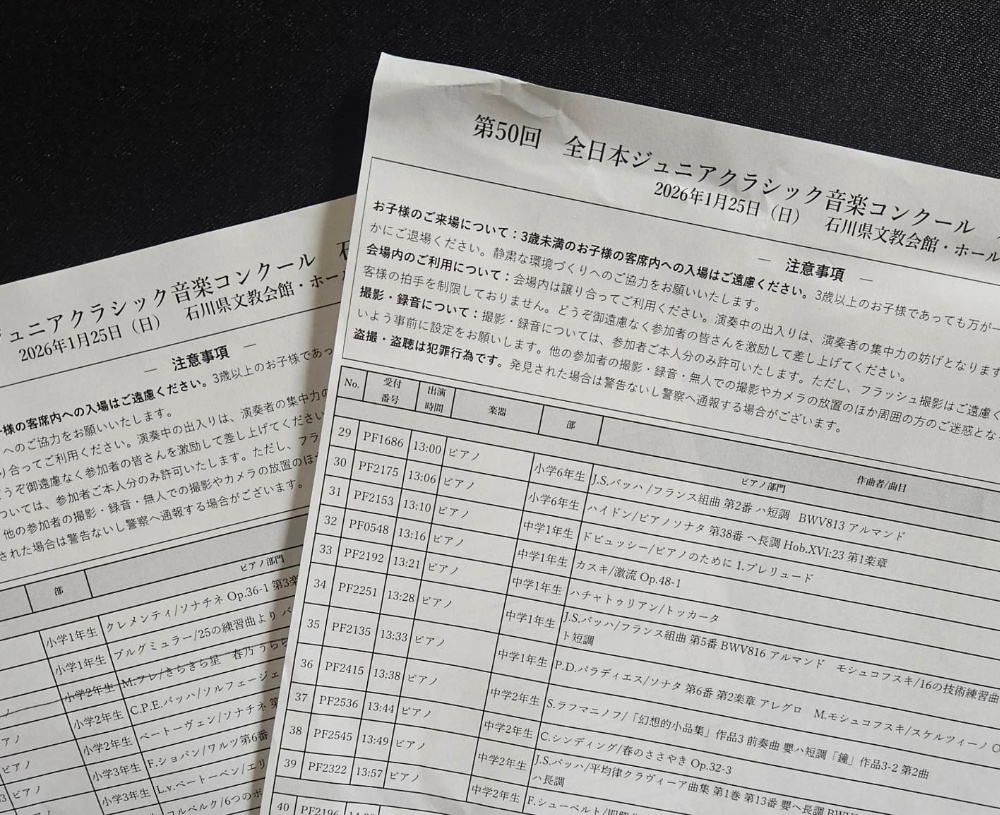 第50回 全日本ジュニアクラシック音楽コンクール
2026年1月25日（日） 石川県文教会館・ホール
― 注意事項 ―
お子様のご来場について：3歳未満のお子様の客席内への入場はご遠慮ください。3歳以上のお子様であっても万が一
かにご退場ください。静粛な環境づくりへのご協力をお願いいたします。
会場内のご利用について：会場内は譲り合ってご利用ください。演奏中の出入りは、演奏者の集中力の妨げとなります
客様の拍手を制限しておりません。どうぞ御遠慮なく参加者の皆さんを激励して差し上げてください。
撮影・録音について：撮影・録音については、参加者ご本人分のみ許可いたします。ただし、フラッシュ撮影はご遠慮く
いよう事前に設定をお願いします。他の参加者の撮影・録音・無人での撮影やカメラの放置のほか周囲の方のご迷惑とな
盗撮・盗聴は犯罪行為です。発見された場合は警告ないし警察へ通報する場合がございます。
No. 受付番号 出演時間 楽器 部 作曲者/曲目
ピアノ部門
29 PF1686 13:00 ピアノ 小学6年生 J.S.バッハ/フランス組曲 第2番 ハ短調 BWV813 アルマンド
30 PF2175 13:06 ピアノ 小学6年生 ハイドン/ピアノソナタ 第38番 ヘ長調 Hob.XVI:23 第1楽章
31 PF2153 13:10 ピアノ 中学1年生 ドビュッシー/ピアノのために 1.プレリュード
32 PF0548 13:16 ピアノ 中学1年生 カスキ/激流 Op.48-1
33 PF2192 13:21 ピアノ 中学1年生 ハチャトゥリアン/トッカータ
34 PF2251 13:28 ピアノ 中学1年生 J.S.バッハ/フランス組曲 第5番 BWV816 アルマンド モシュコフスキ/16の技術練習曲
ト短調
35 PF2135 13:33 ピアノ 中学1年生 P.D.パラディエス/ソナタ 第6番 第2楽章 アレグロ M.モシュコフスキ/スケルツィーノ
36 PF2415 13:38 ピアノ 中学2年生 S.ラフマニノフ/「幻想的小品集」作品3 前奏曲 嬰ハ短調「鐘」作品3-2 第2曲
37 PF2536 13:44 ピアノ 中学2年生 C.シンディング/春のささやき Op.32-3
38 PF2545 13:49 ピアノ 中学2年生 J.S.バッハ/平均律クラヴィーア曲集 第1巻 第13番 嬰ヘ長調
ハ長調
39 PF2322 13:57 ピアノ 中学2年生 F.シューベルト/
40 PF2196
ュニアクラシック音楽コンクール
2026年1月25日（日） 石川県文教会館・ホー
― 注意事項 ―
様の客席内への入場はご遠慮ください。3歳以上のお子様であっ
へのご協力をお願いいたします。
り合ってご利用ください。演奏中の出入りは、演奏者の集中力の
うぞ御遠慮なく参加者の皆さんを激励して差し上げてください
ついては、参加者ご本人分のみ許可いたします。ただし、フラ
他の参加者の撮影・録音・無人での撮影やカメラの放置のほ
された場合は警告ないし警察へ通報する場合がございます。
部
ピアノ部門
小学1年生 クレメンティ/ソナチネ Op.36-1 第3楽
小学1年生 ブルグミュラー/25の練習曲より
小学2年生 きらきら星
ピアノ 小学2年生 C.P.E.バッハ/ソルフェージェ
ピアノ 小学2年生 ベートーヴェン/ソナチネ
ピアノ 小学3年生 F.ショパン/ワルツ第6番
小学3年生 L.v.ベートーベン/エリ
/6つの